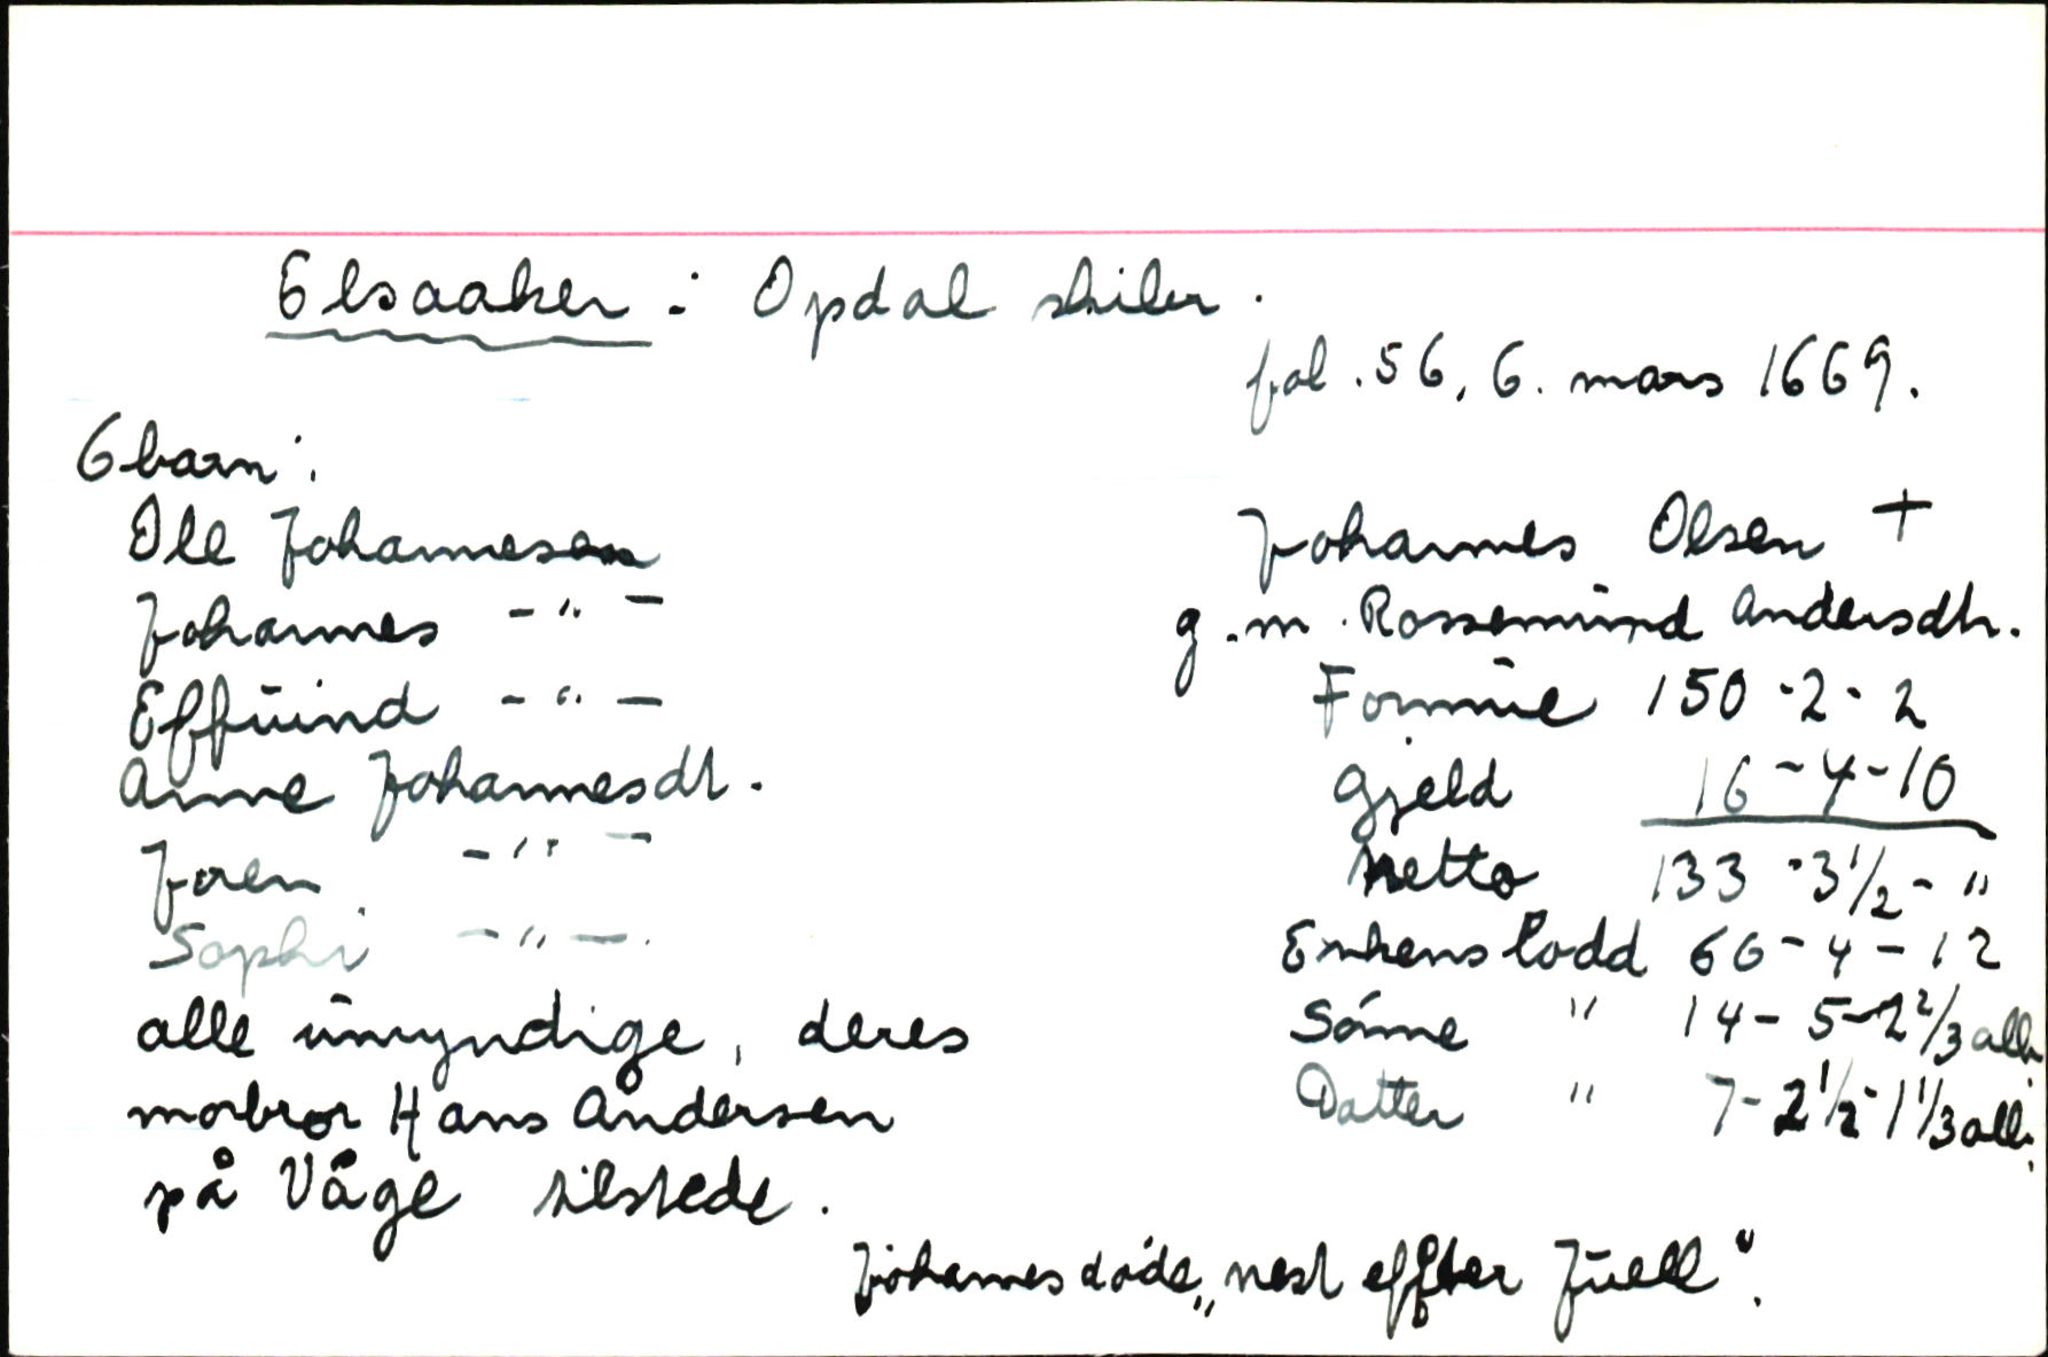 Elsaaker : Opdal skiler.
fol. 56, 6. mars 1669.
6 barn:
Ole Johannesen
Johannes -"-
Effuind -"-
Anne Johannesdt.
Joren -"-
Sophi -"-.
alle umyndige, deres
morbror Hans Andersen
på Våge tilstede.
Johannes Olsen +
g.m. Rossemund Andersdtr.
Formue 150-2-2
Gjeld 16-4-10
Netto 133-3 1/2-"
Enkens lodd 66-4-12
Sønne " 14-5-2 2/3 alb.
Datter " 7-2 1/2-1 1/3 alb.
Johannes døde „nest effter Juell".